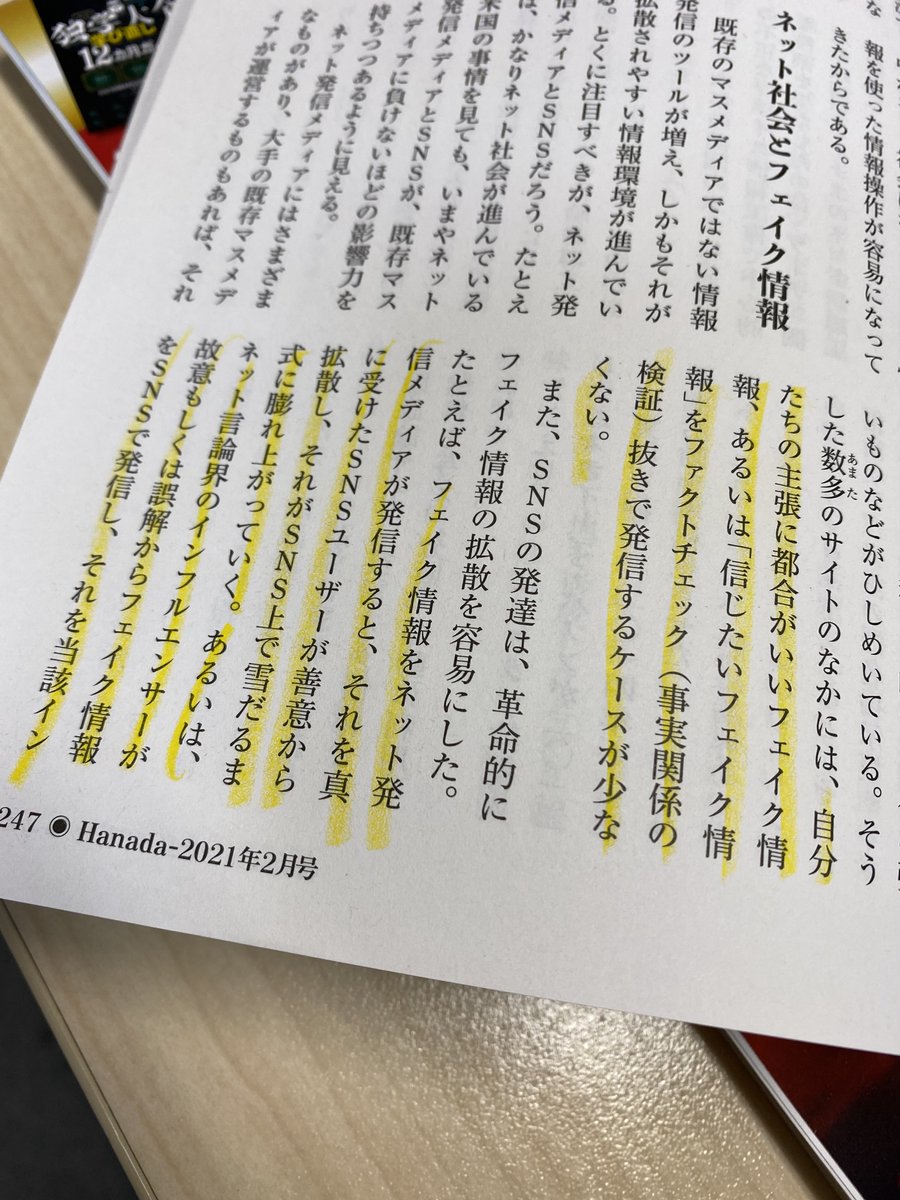 報を使った情報操作が容易になって
きたからである。
ネット社会とフェイク情報
既存のマスメディアではない情報
発信のツールが増え、しかもそれが
拡散されやすい情報環境が進んでい
る。とくに注目すべきが、ネット発
信メディアとSNSだろう。たとえ
ば、かなりネット社会が進んでいる
米国の事情を見ても、いまやネット
発信メディアとSNSが、既存マス
メディアに負けないほどの影響力を
持ちつつあるように見える。
ネット発信メディアにはさまざま
なものがあり、大手の既存マスメデ
ィアが運営するものもあれば、それ
いものなどがひしめいている。そう
した数多のサイトのなかには、自分
あまた
たちの主張に都合がいいフェイク情
報、あるいは「信じたいフェイク情
報」をファクトチェック（事実関係の
検証）抜きで発信するケースが少な
くない。
また、SNSの発達は、革命的に
フェイク情報の拡散を容易にした。
たとえば、フェイク情報をネット発
信メディアが発信すると、それを真
に受けたSNSユーザーが善意から
拡散し、それがSNS上で雪だるま
式に膨れ上がっていく。あるいは、
ネット言論界のインフルエンサーが
故意もしくは誤解からフェイク情報
をSNSで発信し、それを当該イン
247 ◉ Hanada-2021年2月号
12か月